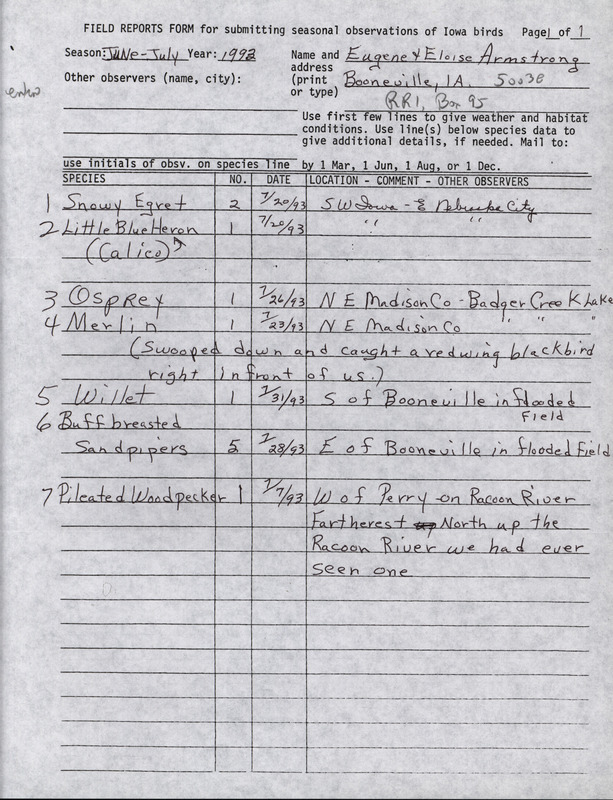 FIELD REPORTS FORM for submitting seasonal observations of Iowa birds Page 1 of 1
Season: June-July Year: 1993 Name and Eugene & Eloise Armstrong
address
Other observers (name, city): (print Booneville, IA. 50038
or type) RR1, Box 95
Use first few lines to give weather and habitat
conditions. Use line(s) below species data to
give additional details, if needed. Mail to:
use initials of obsv. on species line by 1 Mar, 1 Jun, 1 Aug, or 1 Dec.
SPECIES NO. DATE LOCATION - COMMENT - OTHER OBSERVERS
1 Snowy Egret 2 7/20/93 SW Iowa - E Nebraska City
2 Little Blue Heron 1 7/20/93 " "
(Calico)
3 Osprey 1 7/26/93 N E Madison Co - Badger Creek Lake
4 Merlin 1 7/23/93 N E Madison Co " " "
(Swooped down and caught a redwing blackbird
right in front of us.)
5 Willet 1 7/31/93 S of Booneville in flooded
Field
6 Buff breasted
Sandpipers 5 7/28/93 E of Booneville in flooded Field
7 Pileated Woodpecker 1 7/7/93 W of Perry on Racoon River
Fartherest North up the
Racoon River we had ever
seen one